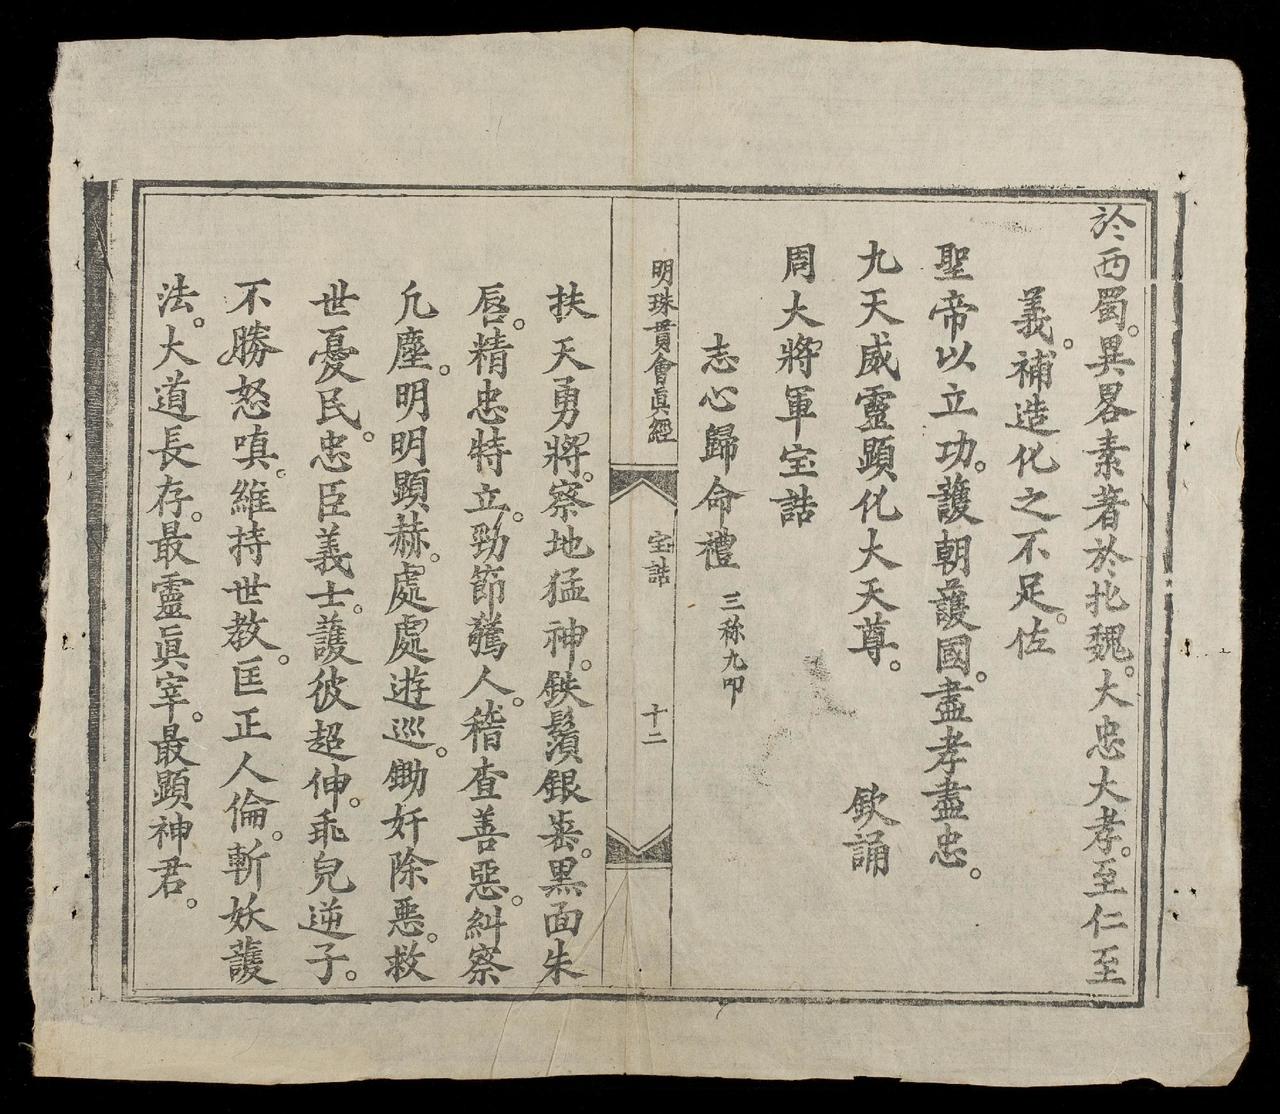 於西蜀。異畧素著於北魏。大忠大孝。至仁至
義。補造化之不足。佐
聖帝以立功。護朝護國。盡孝盡忠。
九天威靈顕化大天尊。 欽誦
周大將軍宝誥
志心歸命禮 三称九叩
明珠貫會眞經 宝誥 十二
扶天勇將。察地猛神。鉄鬚銀牙。黒面朱
唇。精忠特立。勁節驚人。稽查善惡。糾察
凢塵。明明顕赫。處處遊巡。鋤奸除悪。救
世憂民。忠臣義士。護彼超伸。乖兒逆子。
不勝怒嗔。維持世教。匡正人倫。斬妖護
法。大道長存。最靈眞宰。最顕神君。